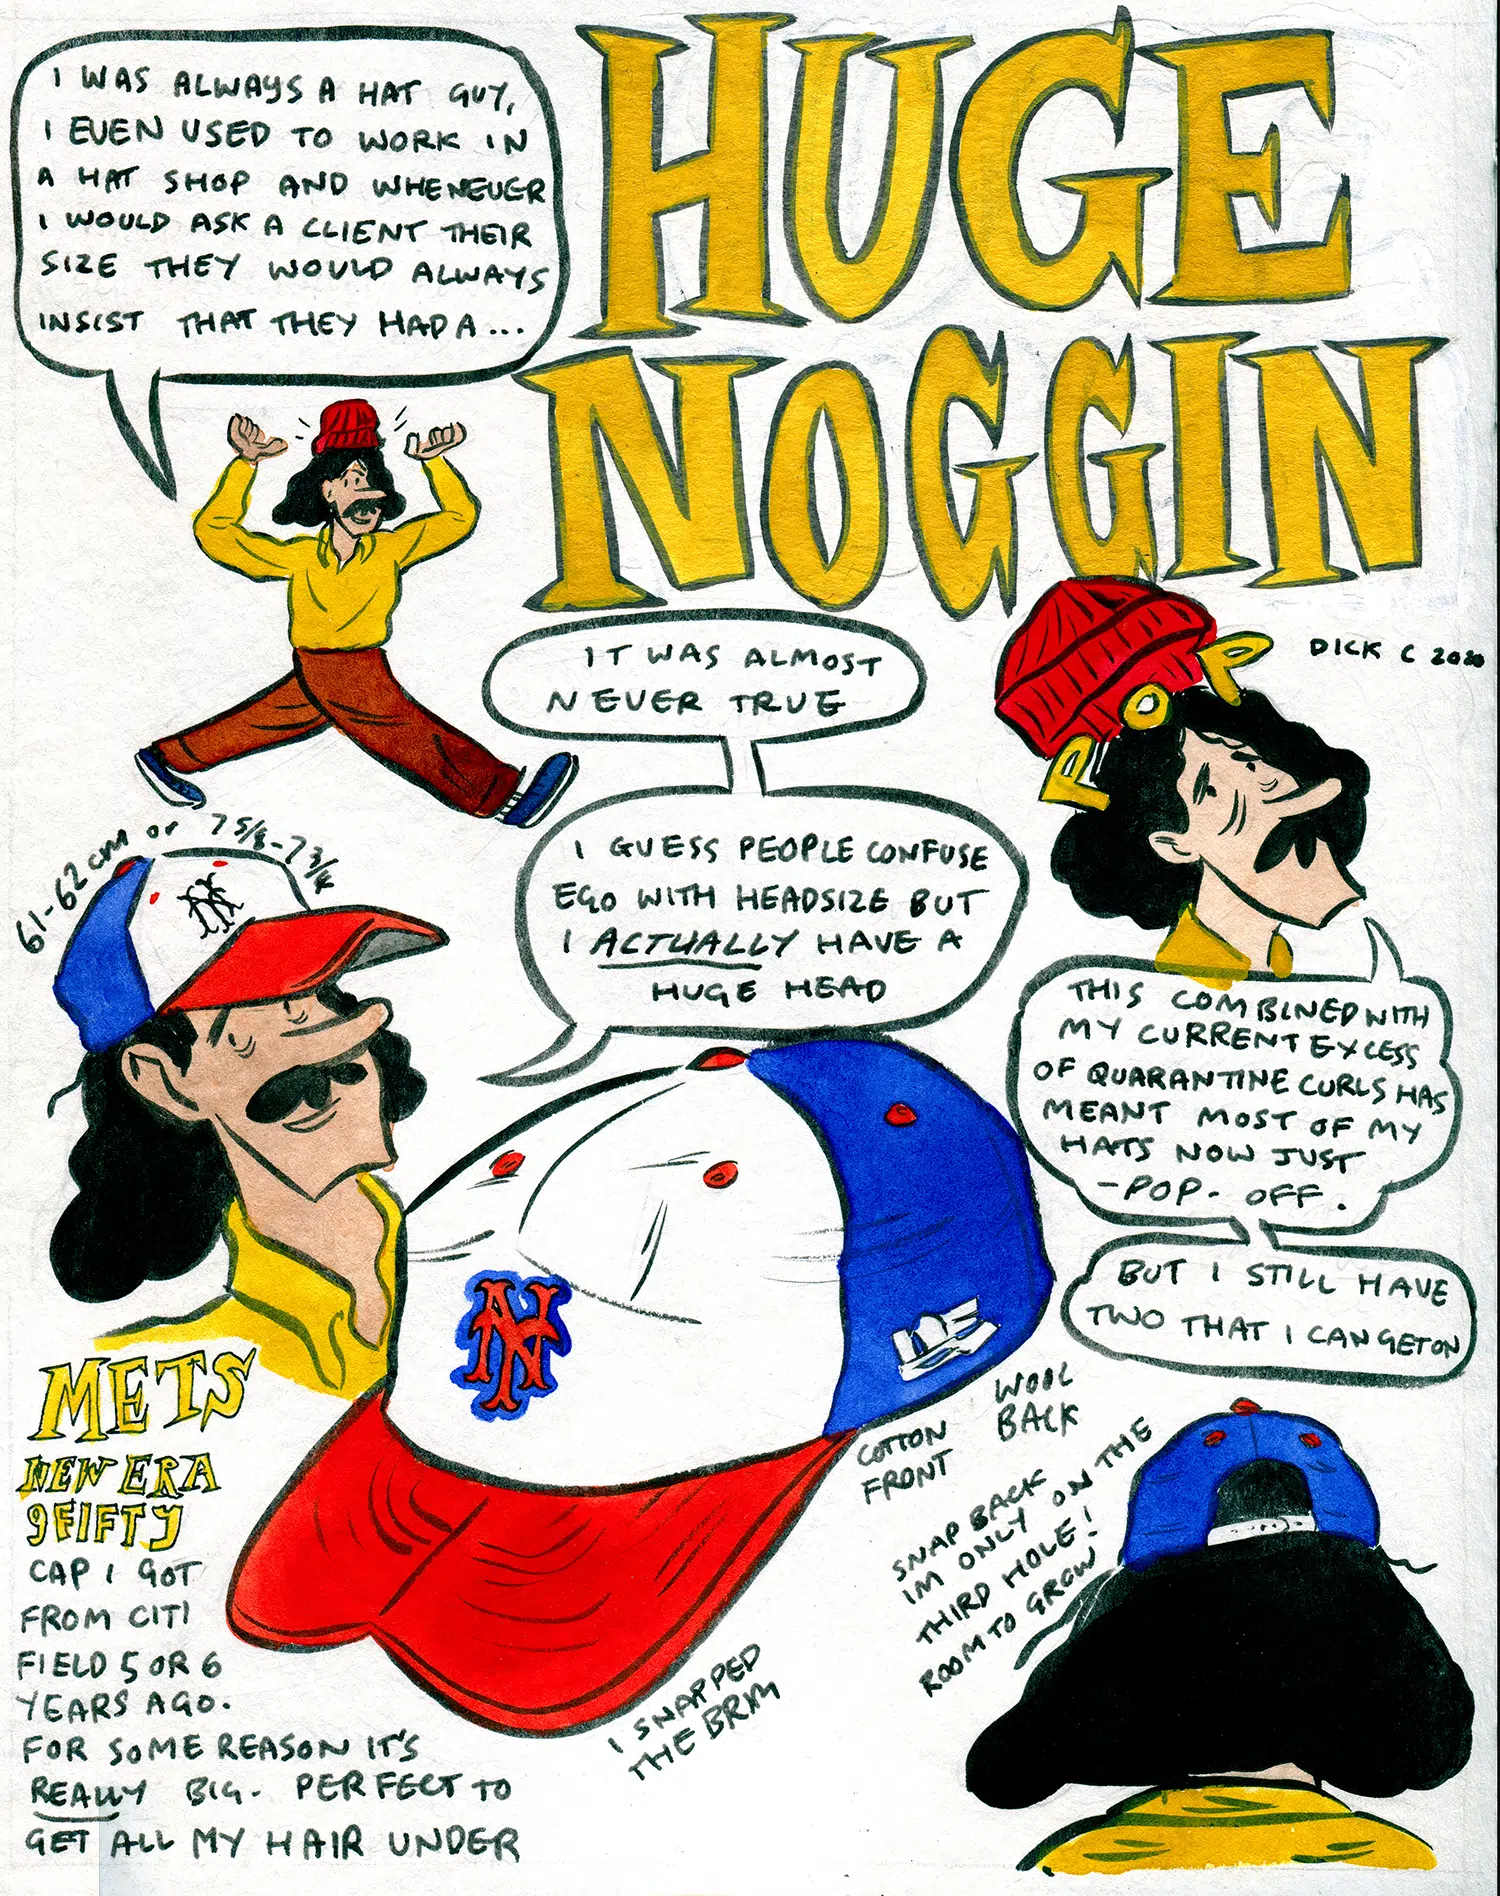 I WAS ALWAYS A HAT GUY,
I EVEN USED TO WORK IN
A HAT SHOP AND WHENEVER
I WOULD ASK A CLIENT THEIR
SIZE THEY WOULD ALWAYS
INSIST THAT THEY HAD A...
HUGE
NOGGIN
DICK C 2020
IT WAS ALMOST
NEVER TRUE
I GUESS PEOPLE CONFUSE
EGO WITH HEADSIZE BUT
I ACTUALLY HAVE A
HUGE HEAD
POP
THIS COMBINED WITH
MY CURRENT EXCESS
OF QUARANTINE CURLS HAS
MEANT MOST OF MY
HATS NOW JUST
-POP- OFF.
BUT I STILL HAVE
TWO THAT I CAN GET ON
61-62cm or 7 5/8-7 3/4
NY
NY
METS
NEW ERA
9FIFTY
CAP I GOT
FROM CITI
FIELD 5 OR 6
YEARS AGO.
FOR SOME REASON IT'S
REALLY BIG. PERFECT TO
GET ALL MY HAIR UNDER
I SNAPPED
THE BRIM
COTTON
FRONT
WOOL
BACK
SNAP BACK
IM ONLY ON THE
THIRD HOLE!
ROOM TO GROW